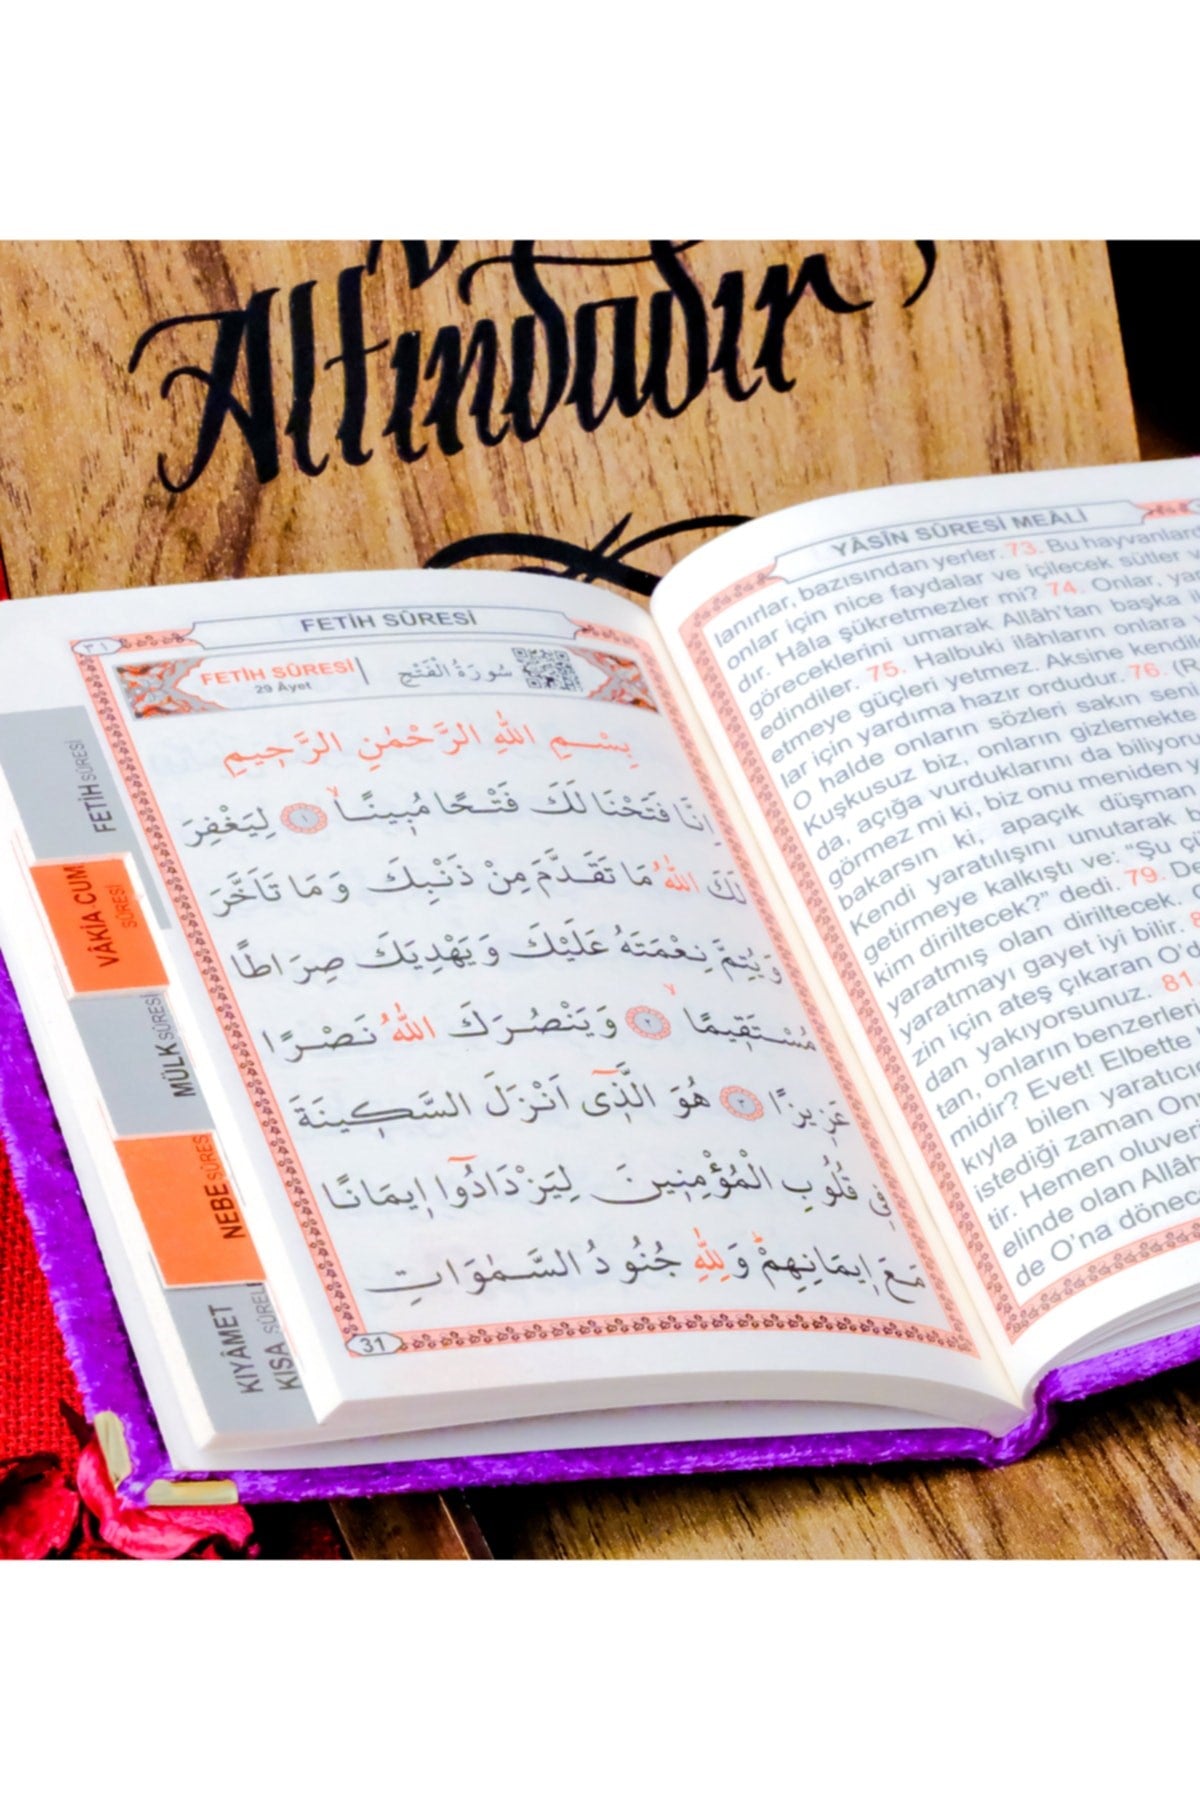 Altındadır
FETİH SÛRESİ
٣١
FETİH SÛRESİ
29 Âyet
سُورَةُ الْفَتْحِ
بِسْمِ اللّٰهِ الرَّحْمٰنِ الرَّحٖيمِ
اِنَّا فَتَحْنَا لَكَ فَتْحًا مُبٖينًاۙ ١ لِيَغْفِرَ
لَكَ اللّٰهُ مَا تَقَدَّمَ مِنْ ذَنْبِكَ وَمَا تَاَخَّرَ
وَيُتِمَّ نِعْمَتَهُ عَلَيْكَ وَيَهْدِيَكَ صِرَاطًا
مُسْتَقٖيمًاۙ ٢ وَيَنْصُرَكَ اللّٰهُ نَصْرًا
عَزٖيزًا ٣ هُوَ الَّذٖٓى اَنْزَلَ السَّكٖينَةَ
فٖى قُلُوبِ الْمُؤْمِنٖينَ لِيَزْدَادُٓوا اٖيمَانًا
مَعَ اٖيمَانِهِمْۜ وَلِلّٰهِ جُنُودُ السَّمٰوَاتِ
31
FETİH SÛRESİ
VÂKIA CUM
SÛRESİ
MÜLK SÛRESİ
NEBE SÛRES
KIYÂMET
KISA SÛREL
YÂSİN SÛRESİ MEÂLİ
lanırlar, bazısından yerler. 73. Bu hayvanlard
onlar için nice faydalar ve içilecek sütler v
dır. Hâla şükretmezler mi? 74. Onlar, ya
göreceklerini umarak Allâh'tan başka il
edindiler. 75. Halbuki ilâhların onlara
etmeye güçleri yetmez. Aksine kendil
lar için yardıma hazır ordudur. 76. (R
O halde onların sözleri sakın seni
Kuşkusuz biz, onların gizlemekte
da, açığa vurduklarını da biliyoru
görmez mi ki, biz onu meniden y
bakarsın ki, apaçık düşman
Kendi yaratılışını unutarak b
getirmeye kalkıştı ve: "Şu çü
kim diriltecek?" dedi. 79. De
yaratmış olan diriltecek.
yaratmayı gayet iyi bilir. 8
zin için ateş çıkaran O'd
dan yakıyorsunuz. 81
tan, onların benzerler
midir? Evet! Elbette
kıyla bilen yaratıcı
istediği zaman On
tir. Hemen oluveri
elinde olan Allâh
de O'na dönec